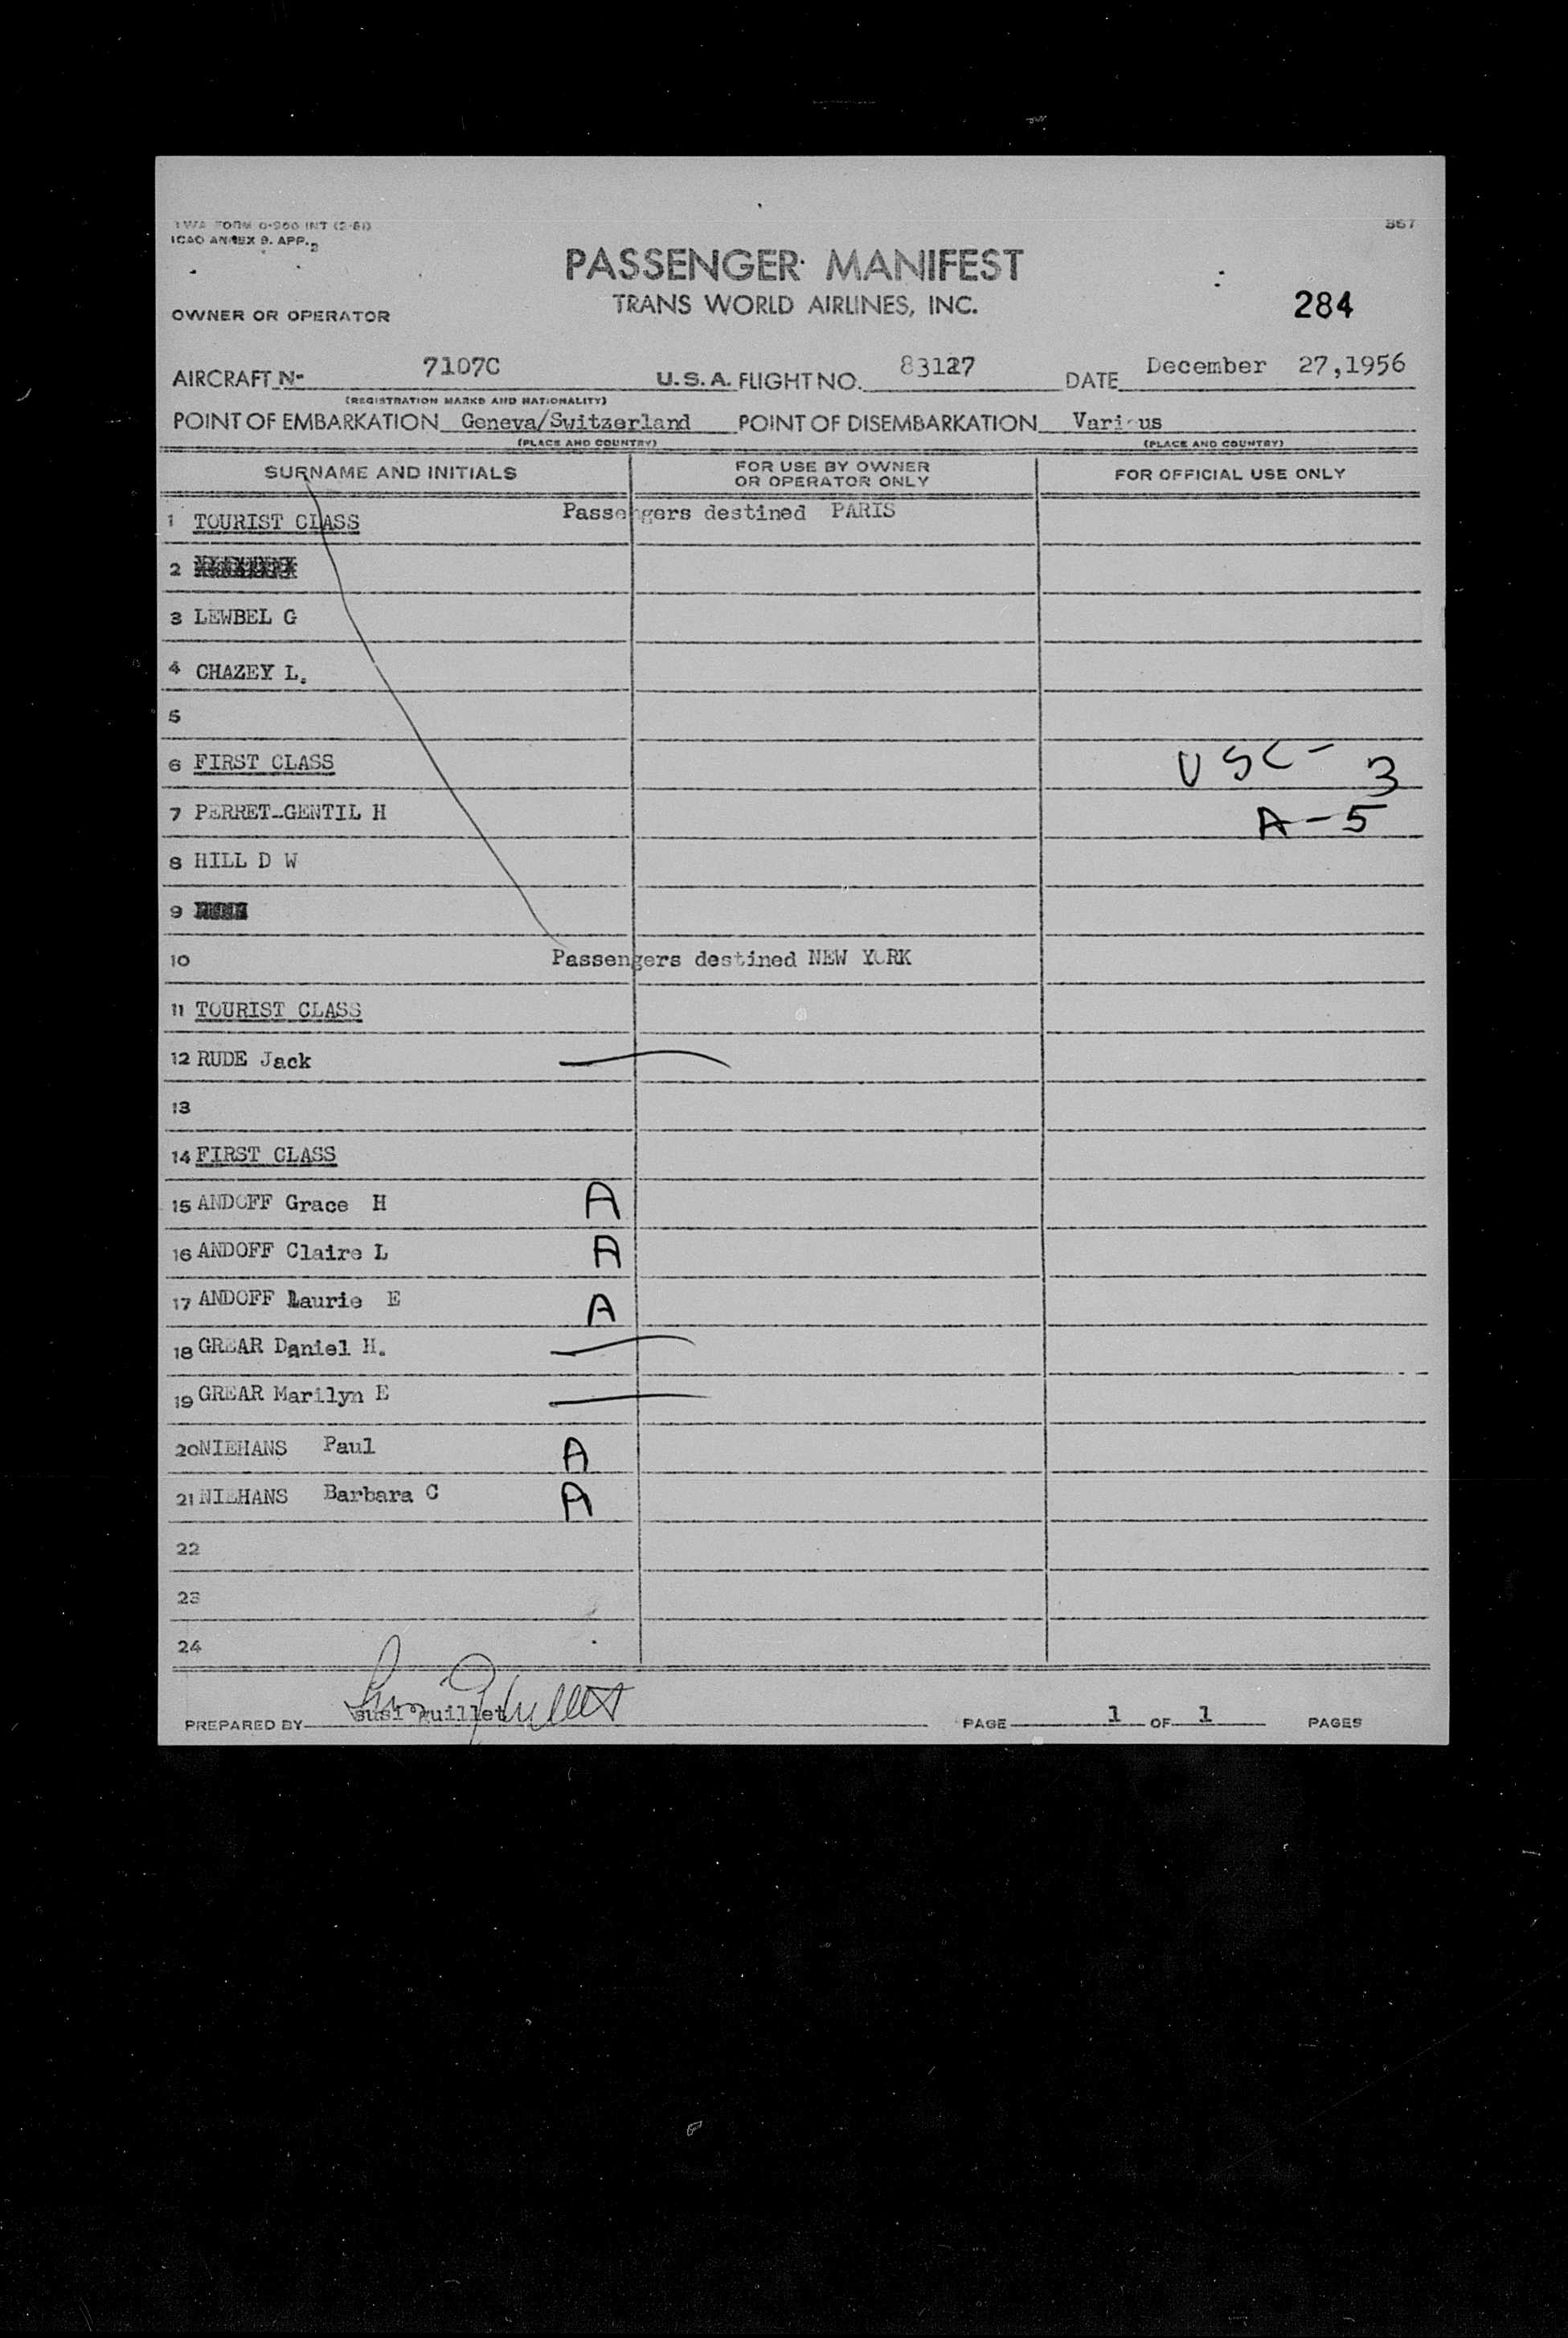 TWA FORM 0-900 INT
ICAO ANNEX 9. APP. 2
867
PASSENGER MANIFEST
TRANS WORLD AIRLINES, INC.
284
OWNER OR OPERATOR
AIRCRAFT Nº 7107C U.S.A. FLIGHT NO. 83127 DATE December 27,1956
(REGISTRATION MARKS AND NATIONALITY)
POINT OF EMBARKATION Geneva/Switzerland POINT OF DISEMBARKATION Various
(PLACE AND COUNTRY) (PLACE AND COUNTRY)
SURNAME AND INITIALS FOR USE BY OWNER OR OPERATOR ONLY FOR OFFICIAL USE ONLY
1 TOURIST CLASS Passengers destined PARIS
2
3 LEWBEL G
4 CHAZEY L.
5
6 FIRST CLASS USC- 3
7 PERRET-GENTIL H A-5
8 HILL D W
9
10 Passengers destined NEW YORK
11 TOURIST CLASS
12 RUDE Jack
13
14 FIRST CLASS
15 ANDOFF Grace H A
16 ANDOFF Claire L A
17 ANDOFF Laurie E A
18 GREAR Daniel H.
19 GREAR Marilyn E
20 NIEHANS Paul A
21 NIEHANS Barbara C A
22
23
24
PREPARED BY susi guillet PAGE 1 OF 1 PAGES